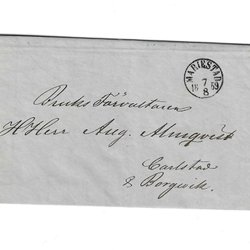 MARIESTAD
7
18 69
8
Bruks Förvaltaren
H Herr Aug. Almqvist
Carlstad
& Borgwik.